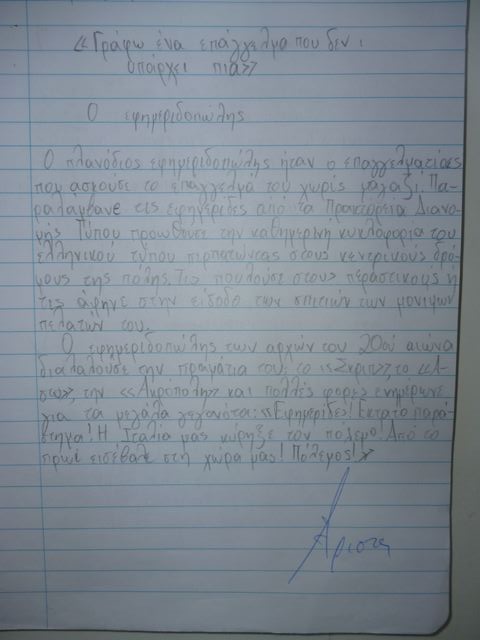 «Γράφω ένα επάγγελμα που δεν
υπάρχει πια»
Ο εφημεριδοπώλης
Ο πλανόδιος εφημεριδοπώλης ήταν ο επαγγελματίας
που ασκούσε το επάγγελμά του χωρίς μαγαζί. Πα-
ραλάμβανε τις εφημερίδες από τα Πρακτορεία Διανο-
μής Τύπου προωθούσε την καθημερινή κυκλοφορία του
ελληνικού τύπου περπατώντας στους κεντρικούς δρό-
μους της πόλης. Τις πουλούσε στους περαστικούς ή
τις άφηνε στην είσοδο των σπιτιών των μονίμων
πελατών του.
Ο εφημεριδοπώλης των αρχών του 20ού αιώνα
διαλαλούσε την πραμάτια του, το «Σκριπ», το «Ά-
στυ», την «Ακρόπολη» και πολλές φορές ενημέρωνε
για τα μεγάλα γεγονότα: «Εφημερίδες! Έκτατο παρά-
στημα! Η Ιταλία μας κήρηξε τον πόλεμο! Από το
πρωί εισέβαλε στη χώρα μας! Πόλεμος!»
Άριστα